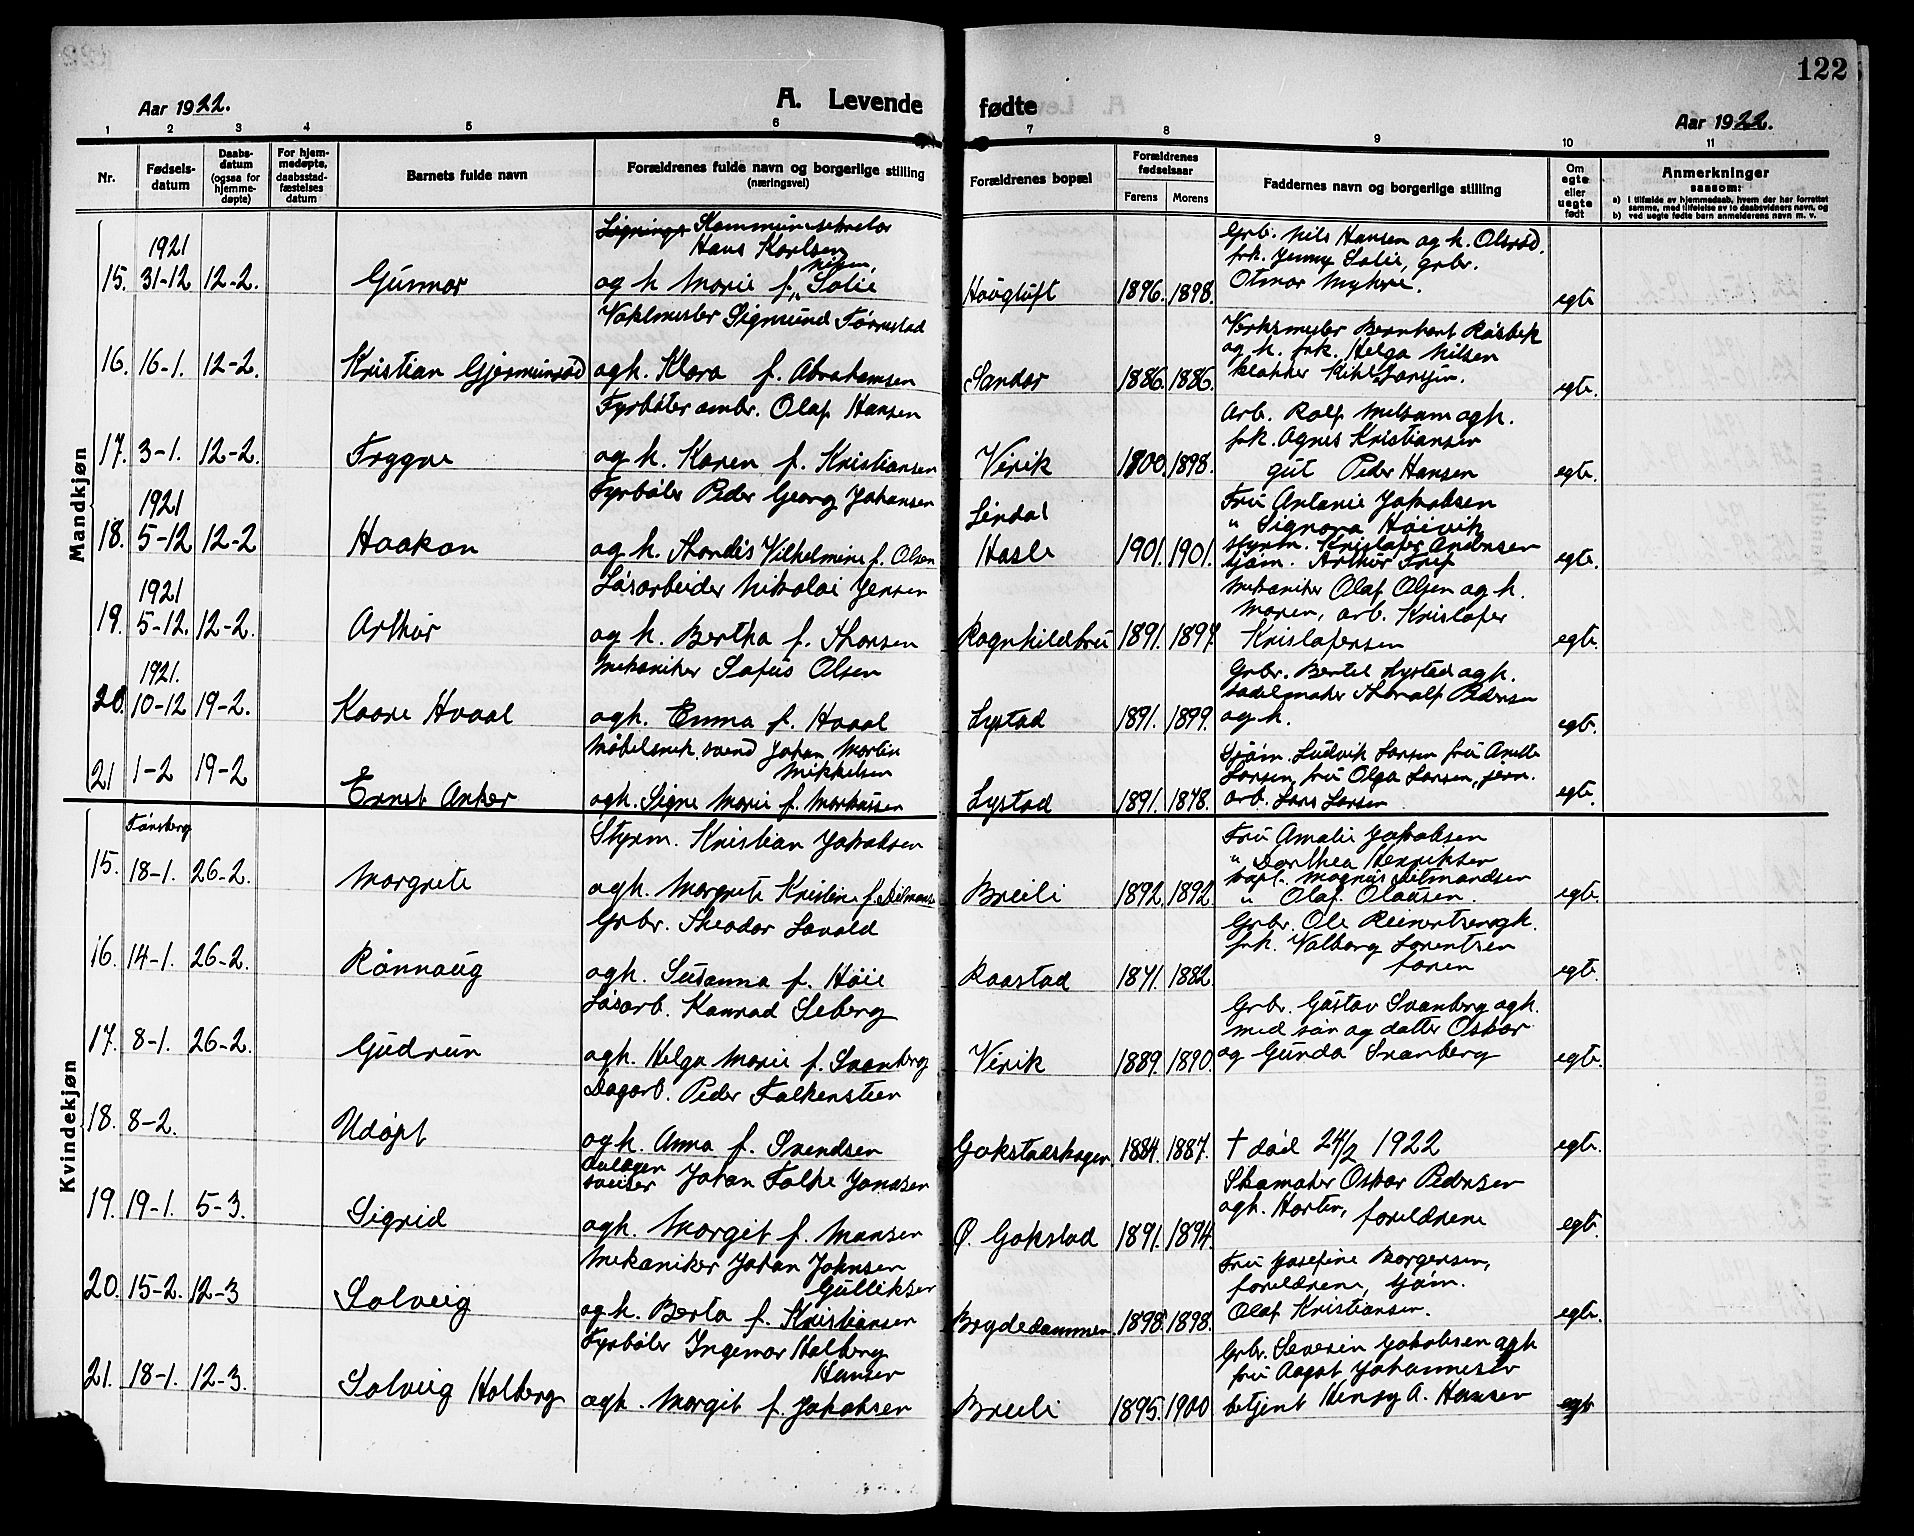 122
Aar 1922.
A. Levende fødte
Aar 1922.
1 2 3 4 5 6 7 8 9 10 11
Nr.
Fødsels-
datum
Daabs-
datum
(ogsaa for
hjemme-
døpte)
For hjem-
medøpte,
daabsstad-
fæstelses
datum
Barnets fulde navn
Forældrenes fulde navn og borgerlige stilling
(næringsvei)
Forældrenes bopæl
Forældrenes
fødselsaar
Farens Morens
Faddernes navn og borgerlige stilling
Om
egte
eller
uegte
født
Anmerkninger
saasom:
a) i tilfælde av hjemmedaab, hvem der har forrettet
samme, med tilføielse av to daabsvidners navn, og
b) ved uegte fødte barn anmelderens navn m. v.
Mandkjøn
1921
15. 31-12 12-2. Gunnar
Kommunesekretær
Hans Karlsen
og h Marie f. Nilsen, Solie
Haugtuft 1896. 1898.
Grb. Nils Hansen og h. Olsrød.
frk. Jenny Solie, grbr.
Otmar Myhre.
egte
16. 16-1. 12-2. Kristian Gjermundrød
Vaktmester Sigmund Tørrestad
ogh. Klara f. Abrahamsen
Sandar 1886. 1886.
Verksmester Bernhart Råsbek
og h. frk. Helga Nilsen
egte.
17. 3-1. 12-2. Tryggve
Fyrbøter ombr. Olaf Hansen
og h. Karen f. Kristiansen
Virik 1800. 1898.
Arb. Rolf Melsom ogh.
frk. Agnes Kristiansen
gut Peder Hansen
egte.
1921
18. 5-12 12-2 Haakon
Fyrbøter Peder Georg Johansen
og h. Thordis Vilhelmine f. Olsen
Lindal
Hasle 1901. 1901.
Fru Antonie Jakobsen
" Signora Høivik
styrm. Kristofer Andersen
sjøm. Arthur Trip
egte.
1921
19. 5-12. 12-2. Arthur
Løsarbeider Nikolai Jensen
og h. Bertha f. Thorsen
Ragnhildsru 1891. 1897.
Mekaniker Olaf Olsen og h.
Maren, arb. Kristofer
Kristofersen
egte.
1921.
20. 10-12 19-2. Kaare Hvaal
Mekaniker Sofus Olsen
ogh. Emma f. Hvaal
Lystad 1891. 1899.
Grbr. Bertel Lystad ogh.
sadelmaker Thoralf Pedersen
og h.
egte.
21 1-2 19-2 Ernst Anker
Møbelsnek. svend Johan Martin
Mikkelsen
ogh. Signe Marie f. Markussen
Lystad 1891. 1878.
Sjøm. Ludvik Larsen fru Anette
Larsen, fru Olga Larsen, jern.
arb. Lars Larsen
egte.
Kvindekjøn
Tønsberg
15. 18-1. 26-2. Margrete
Styrm. Kristian Jakobsen
ogh. Margrete Kristine f. Ditmans
Breili 1892. 1892.
Fru Amalie Jakobsen
" Dorthea Henriksen
kapt. Magnus Ditmandsen
" Olaf Olausen.
egte.
16. 14-1. 26-2. Rønnaug
Grbr. Theodor Lovald
ogh. Susanna f. Høie
Raastad 1871. 1882.
Grbr. Ole Reinertsen ogh.
frk. Valborg Lorentzen
faren
egte.
17. 8-1. 26-2. Gudrun
Løsarb. Konrad Seberg
ogh. Helga Marie f. Svanberg
Virik 1889. 1890.
Grb. Gustav Svanberg ogh.
med søn og datter Oskar
og Gunda Svanberg
egte.
18. 8-2. Udøpt
Dagarb. Peder Falkensteen
og h. Anna f. Svendsen
Gokstadhagen 1884. 1887.
† død 24/2 1922
egte.
19. 19-1. 5-3. Sigrid
Johan Falke Jonassen
ogh. Margit f. Monsen
Ø. Gokstad 1891. 1894.
Skomaker Oskar Pedersen
ogh. Horten, forældrene
egte.
20. 15-2. 12-3 Solveig
Mekaniker Johan Johnsen
Gulliksen
og h. Berta f. Kristiansen
Brydedammen 1898. 1898.
Fru Josefine Borgersen,
forældrene, sjøm.
Olaf Kristiansen.
egte.
21. 18-1. 12-3. Solveig Holberg
Fyrbøter Ingemar Holberg
Hansen
ogh. Margit f. Jakobsen
Breili 1895. 1900
Grbr. Severin Jakobsen ogh
fru Aagot Johannesen
betjent Henry A. Hansen
egte